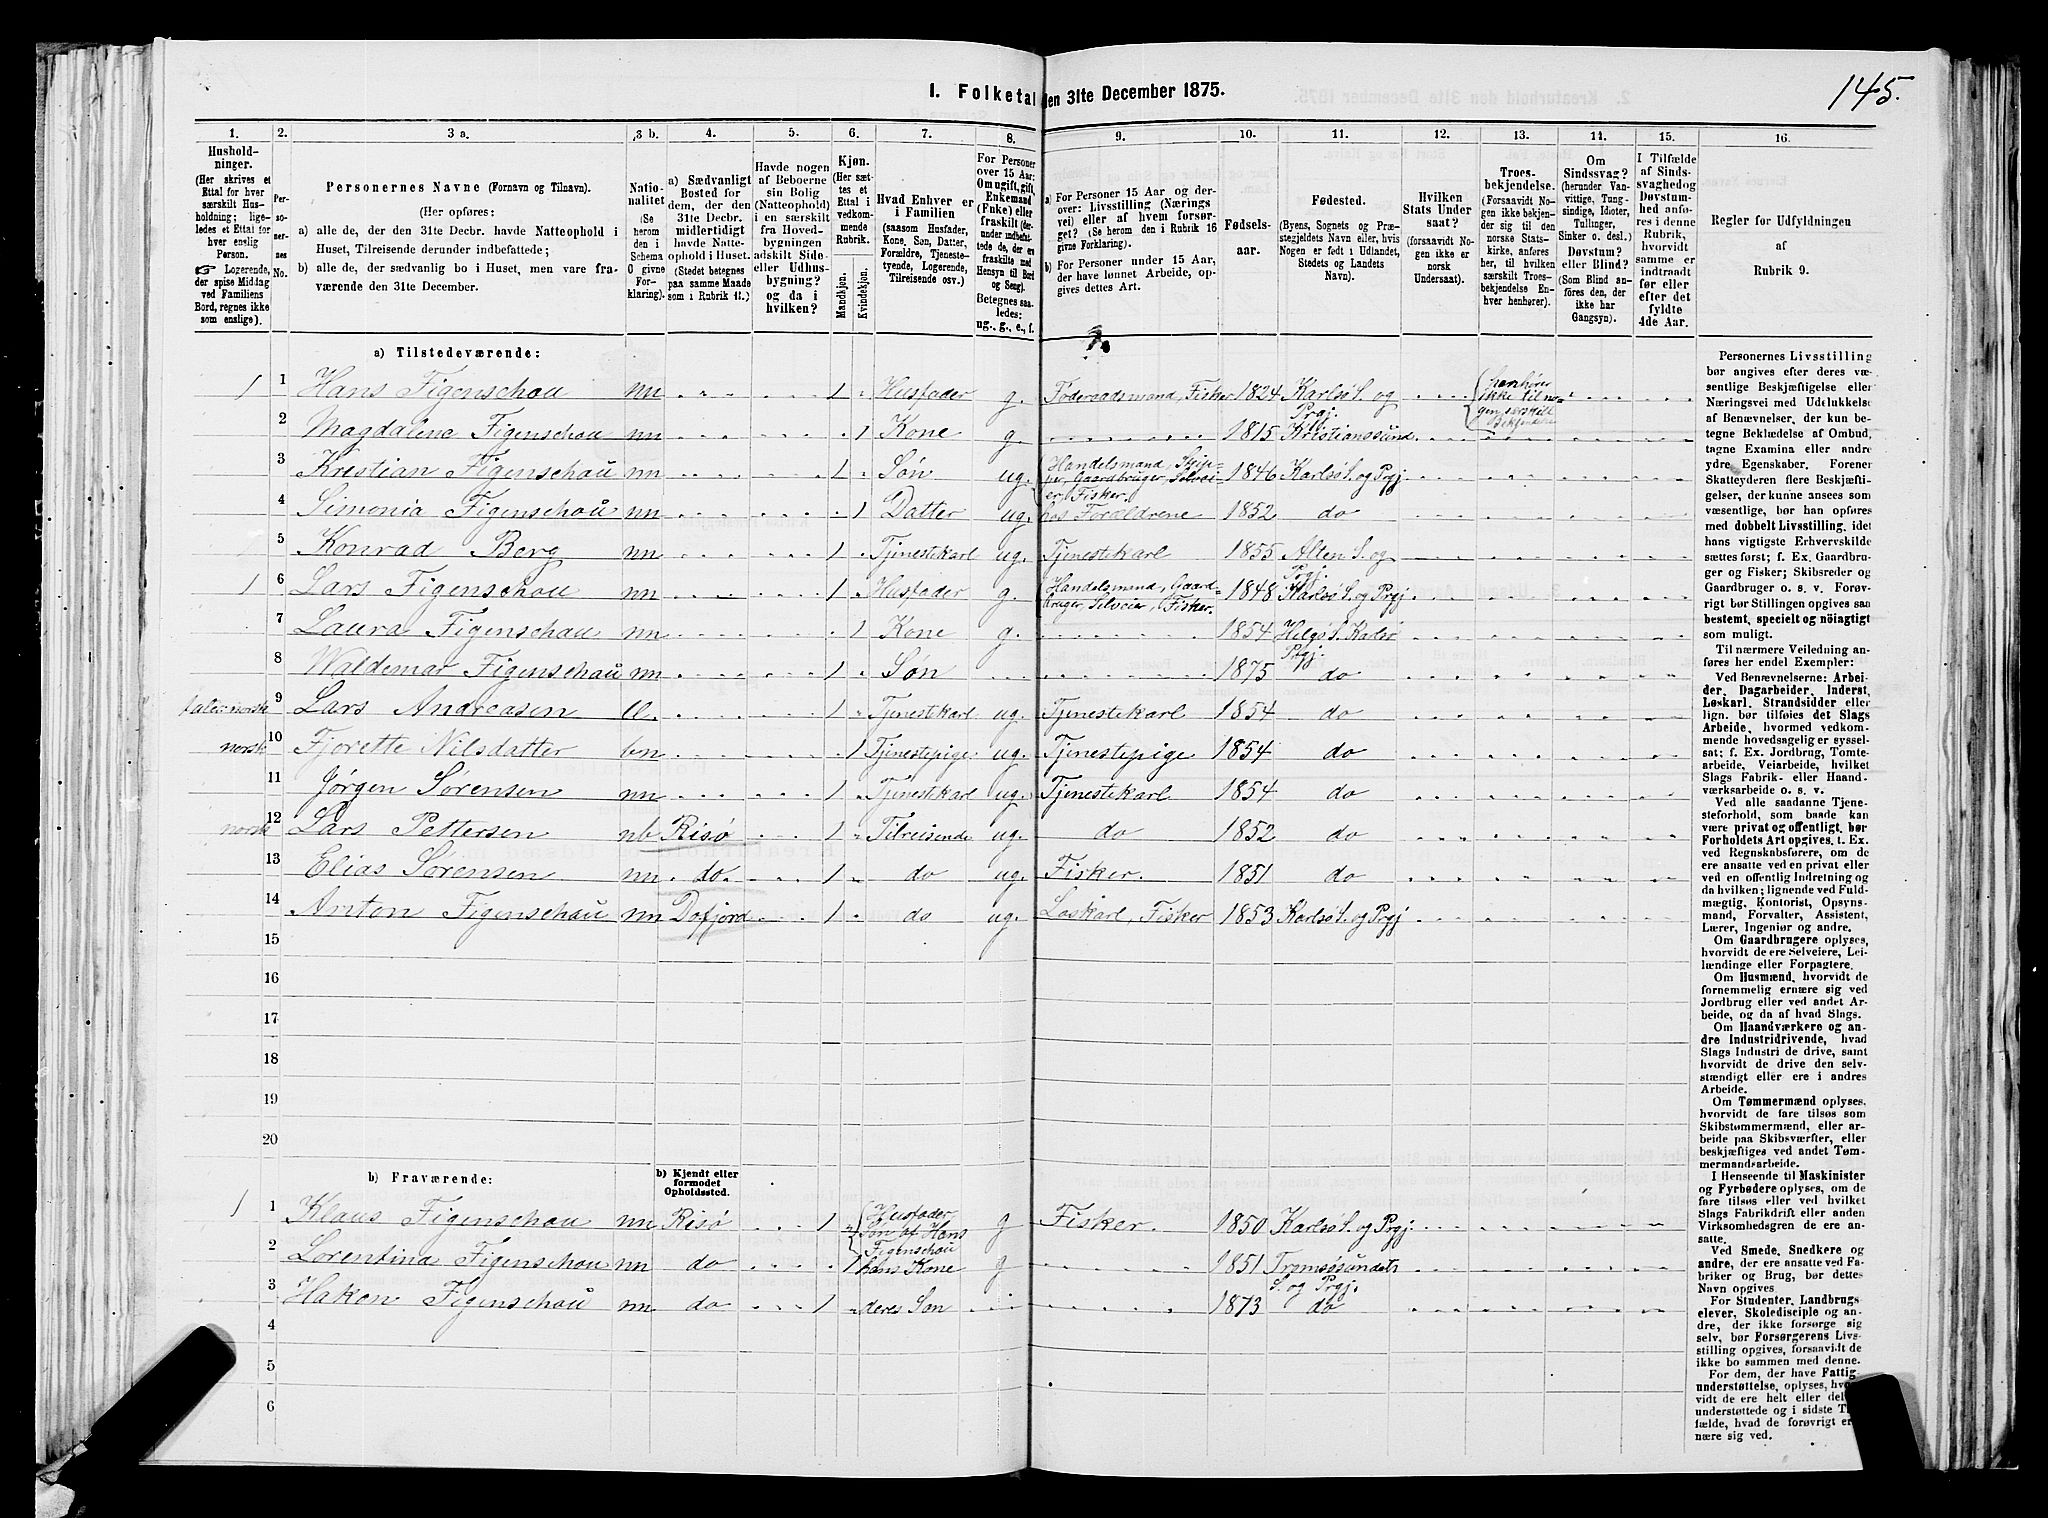 145.
I. Folketal den 31te December 1875.
1. 2. 3 a. 3 b. 4. 5. 6. 7. 8. 9. 10. 11. 12. 13. 14. 15. 16.
Husholdninger.
(Her skrives et
Ettal for hver
særskilt Husholdning;
ligeledes et Ettal for
hver enslig
Person.
☞ Logerende,
der spise Middag
ved Familiens
Bord, regnes ikke
som enslige).
Personernes No.
Personernes Navne (Fornavn og Tilnavn).
(Her opføres:
a) alle de, der den 31te Decbr. havde Natteophold i
Huset, Tilreisende derunder indbefattede;
b) alle de, der sædvanlig bo i Huset, men vare fraværende
den 31te December.
Nationalitet
(Se
herom
den i
Schema
0 givne
Forklaring).
a) Sædvanligt
Bosted for
dem, der den
31te Decbr.
midlertidigt
havde Natteophold
i Huset.
(Stedet betegnes
paa samme Maade
som i Rubrik 11.)
Havde nogen
af Beboerne
sin Bolig
(Natteophold)
i en særskilt
fra Hovedbygningen
adskilt Side-
eller Udhusbygning?
og da i
hvilken?
Kjøn.
(Her sættes
et
Ettal i
vedkommende
Rubrik.
Mandkjøn. Kvindekjøn.
Hvad Enhver er
i Familien
(saasom Husfader,
Kone, Søn, Datter,
Forældre, Tjenestetyende,
Logerende,
Tilreisende osv.)
For Personer
over 15 Aar:
Om ugift, gift,
Enkemand
(Enke) eller
fraskilt (derunder
indbefattede
de, der ere
fraskilte med
Hensyn til Bord
og Seng).
Betegnes saaledes:
ug., g., e., f.
a) For Personer 15 Aar og derover:
Livsstilling (Næringsvei)
eller af hvem forsørget?
(Se herom den i Rubrik 16
givne Forklaring).
b) For Personer under 15 Aar,
der have lønnet Arbeide, opgives
dettes Art.
Fødselsaar.
Fødested.
(Byens, Sognets og Præstegjeldets
Navn eller, hvis
Nogen er født i Udlandet,
Stedets og Landets
Navn).
Hvilken
Stats Undersaat?
(forsaavidt Nogen
ikke er
norsk
Undersaat).
Troesbekjendelse.
(Forsaavidt Nogen
ikke bekjender
sig til den
norske Statskirke,
anføres
her, til hvilken
særskilt Troesbekjendelse
Enhver
henhører).
Om
Sindssvag?
(herunder Vanvittige,
Tungsindige,
Idioter,
Tullinger,
Sinker o. desl.)
Døvstum?
eller Blind?
(Som Blind anføres
den, der
ikke har
Gangsyn).
I Tilfælde
af Sindssvaghed
og
Døvstumhed
anføres
i denne
Rubrik,
hvorvidt
samme er
indtraadt
før eller
efter det
fyldte
4de Aar.
Regler for Udfyldningen
af
Rubrik 9.
a) Tilstedeværende:
1 1 Hans Figenschou nn 1 Husfader g. Føderaadsmand, Fisker 1824 Karlsø S. og Prgj. henhører ikke til nogen særskilt
2 Magdalena Figenschou nn 1 Kone g. 1815 Kristianssund
3 Krestian Figenschou nn 1 Søn ug. Handelsmand, Skipper, Gaardbruger, Selveier, Fisker. 1846 Karlsø S. og Prgj.
4 Simonia Figenschou nn 1 Datter ug. hos Forældrene 1852 do
5 Konrad Berg nn 1 Tjenestekarl ug. Tjenestekarl 1855 Alten S. og Prgj.
1 6 Lars Figenschou nn 1 Husfader g. Handelsmand, Gaardbruger, Selveier, Fisker. 1848 Karlsø S. og Prgj
7 Laura Figenschou nn 1 Kone g. 1854 Helgø S. Karlsø Prgj.
8 Waldemar Figenschou nn 1 Søn 1875 do
taler norsk 9 Lars Andreasen ll. 1 Tjenestekarl ug. Tjenestekarl 1854 do
norsk 10 Fjorette Nilsdatter bn 1 Tjenestepige ug. Tjenestepige 1854 do
11 Jørgen Sørensen nn 1 Tjenestekarl ug. Tjenestekarl 1854 do
norsk 12 Lars Pettersen nb Risø 1 Tilreisende ug. do 1852 do
13 Elias Sørensen nn do. 1 do ug. Fisker. 1851 do
14 Anton Figenschou nn Dafjord 1 do ug. Løskarl, Fisker 1853 Karlsø S. og Prgj
15
16
17
18
19
20
b) Fraværende:
b) Kjendt eller
formodet
Opholdssted.
1 1 Klaus Figenschou nn Risø 1 Husfader, Søn af Hans Figenschou g Fisker. 1850 Karlsø S. og Prgj.
2 Lorentina Figenschou nn do 1 hans Kone g 1851 Tromsøsundets S. og Prgj.
3 Hakon Figenschou nn do 1 deres Søn 1873 do
4
5
6
Personernes Livsstilling
bør angives efter deres væsentlige
Beskjæftigelse eller
Næringsvei med Udelukkelse
af Benævnelser, der kun betegne
Beklædelse af Ombud,
tagne Examina eller andre
ydre Egenskaber. Forener
Skatteyderen flere Beskjæftigelser,
der kunne ansees som
væsentlige, bør han opføres
med dobbelt Livsstilling, idet
hans vigtigste Erhvervskilde
sættes først; f. Ex. Gaardbruger
og Fisker; Skibsreder og
Gaardbruger o. s. v. Forøvrigt
bør Stillingen opgives saa
bestemt, specielt og nöiagtigt
som muligt.
Til nærmere Veiledning anføres
her endel Exempler:
Ved Benævnelserne: Arbeider,
Dagarbeider, Inderst,
Løskarl, Strandsidder eller
lign. bør tilføies det Slags
Arbeide, hvormed vedkommende
hovedsagelig er sysselsat;
f. Ex. Jordbrug, Tomtearbeide,
Veiarbeide, hvilket
Slags Fabrik- eller Haandværksarbeide
o. s. v.
Ved alle saadanne Tjenesteforhold,
som baade kan
være privat og offentligt, bør
Forholdets Art opgives, t. Ex.
ved Regnskabsførere, om de
ere ansatte ved en privat eller
ved en offentlig Indretning og
da hvilken; lignende ved Fuldmægtig,
Kontorist, Opsynsmand,
Forvalter, Assistent,
Lærer, Ingeniør og andre.
Om Gaardbrugere oplyses,
hvorvidt de ere Selveiere, Leilændinge
eller Forpagtere.
Om Husmænd, hvorvidt de
fornemmelig ernære sig ved
Jordbrug eller ved andet Arbeide,
og da af hvad Slags.
Om Haandværkere og andre
Industridrivende, hvad
Slags Industri de drive, samt
hvorvidt de drive den selvstændigt
eller ere i andres
Arbeide.
Om Tømmermænd oplyses,
hvorvidt de fare tilsøs som
Skibstømmermænd, eller arbeide
paa Skibsværfter, eller
beskjæftiges ved andet Tømmermandsarbeide.
I Henseende til Maskinister
og Fyrbødere oplyses, om de
fare tilsøs eller ved hvilket
Slags Fabrikdrift eller anden
Virksomhedsgren de ere ansatte.
Ved Smede, Snedkere og
andre, der ere ansatte ved Fabriker
og Brug, bør dettes
Navn opgives
For Studenter, Landbrugselever,
Skoledisciple og andre,
der ikke forsørge sig
selv, bør Forsørgerens Livsstilling
opgives, forsaavidt de
ikke bo sammen med denne.
For dem, der have Fattigunderstøttelse,
oplyses,
de ere helt eller
understøttede og i sidste
fælde, hvad de forøvrigt
nære sig ved.